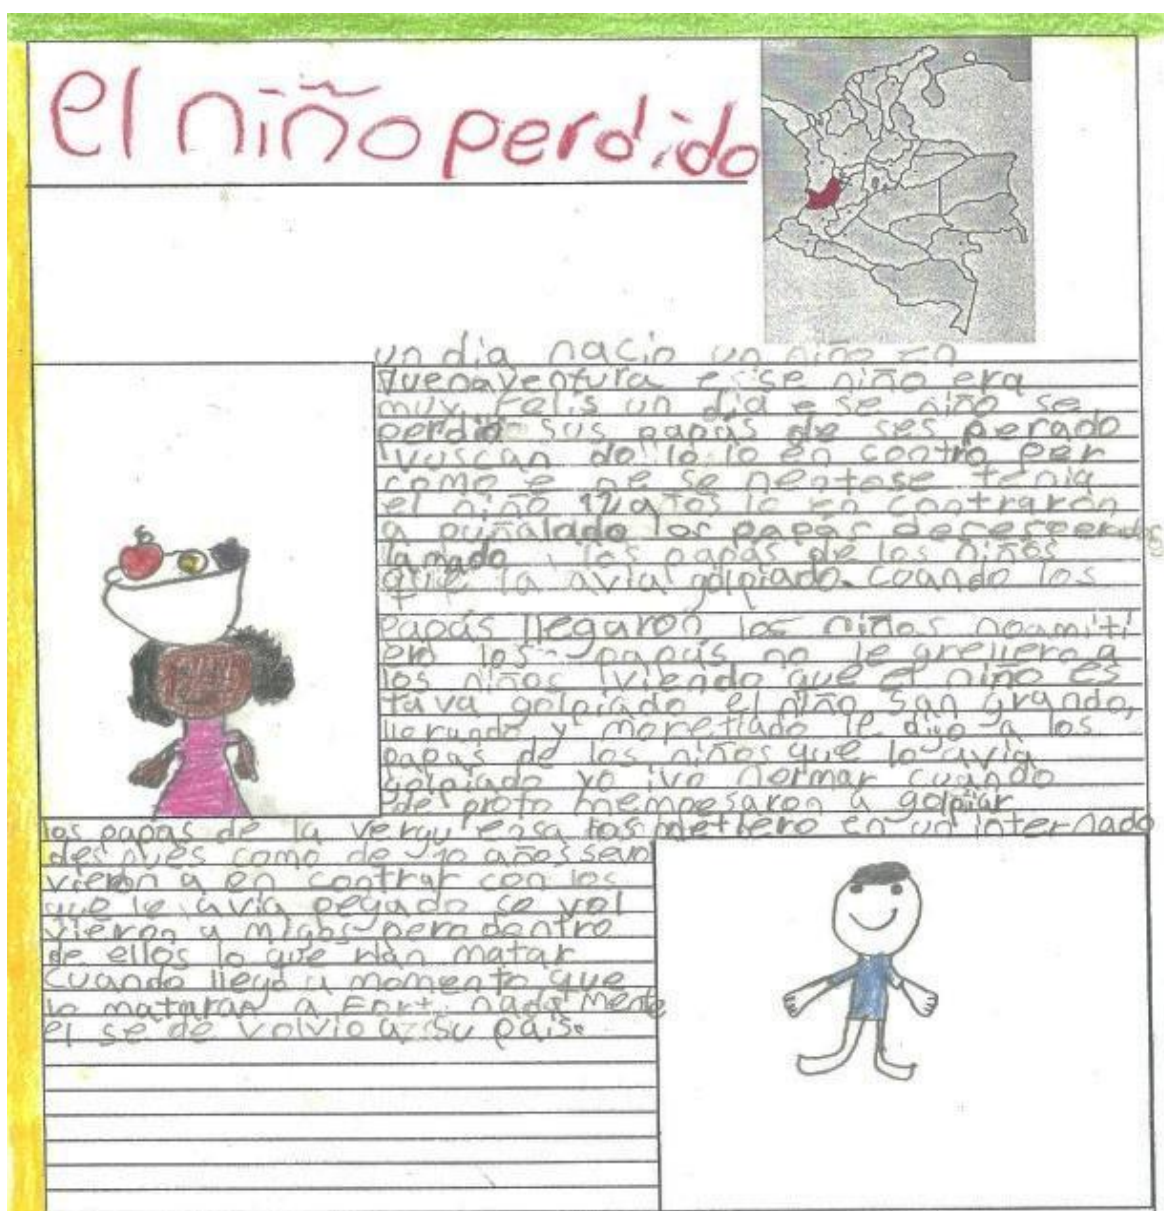 el niño perdido
un dia nacio un niño en
vuenaventura e se niño era
muy felis un dia e se niño se
perdio sus papás de ses perado
vuscan do lo lo en contro per
como e ne se nentose tenia
el niño 12 años lo en contraron
a puñalado los papás desesperados
lamado los papás de los niños
que la avia golpiado. coando los
papás llegaron los niños noamiti
ero los papás no le crellero a
los niños iviendo que el niño es
tava golpiado el niño san grando,
llorando y moretiado le dijo a los
papás de los niños que lo avia
golpiado yo iva normar cuando
de proto mempesaron a golpiar
los papas de la verguensa los metiero en un internado
des pues como de 10 años sevol
vieron a en contrar con los
que le avia pegado se vol
vieron a migos pero dentro
de ellos lo que rian matar
cuando llego a momento que
lo mataran a Fort nada mente
el se de volvio a su pais.